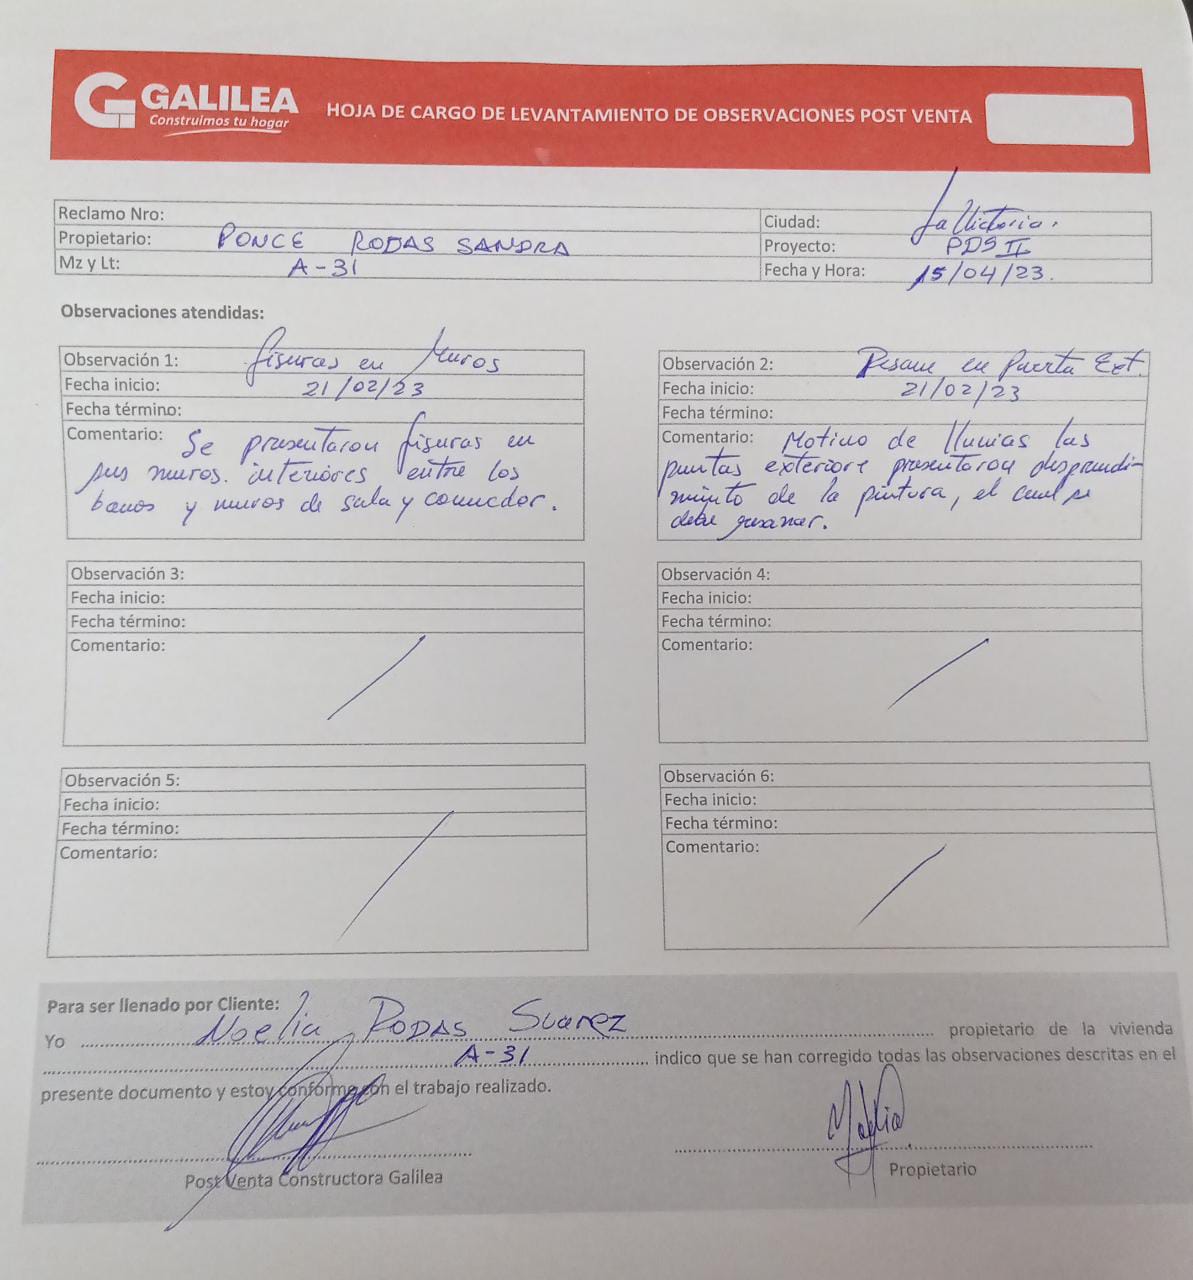 GALILEA
Construimos tu hogar
HOJA DE CARGO DE LEVANTAMIENTO DE OBSERVACIONES POST VENTA
Reclamo Nro:
Propietario: PONCE RODAS SANDRA
Mz y Lt: A-31
Ciudad: La Victoria.
Proyecto: PDS II
Fecha y Hora: 15/04/23.
Observaciones atendidas:
Observación 1: fisuras en Muros
Fecha inicio: 21/02/23
Fecha término:
Comentario: Se presentaron fisuras en
sus muros. interiores entre los
baños y muros de sala y comedor.
Observación 2: Resane en Puerta Ext.
Fecha inicio: 21/02/23
Fecha término:
Comentario: Motivo de lluvias las
puertas exteriore presentaron desprendi-
miento de la pintura, el cual se
debe resanar.
Observación 3:
Fecha inicio:
Fecha término:
Comentario:
Observación 4:
Fecha inicio:
Fecha término:
Comentario:
Observación 5:
Fecha inicio:
Fecha término:
Comentario:
Observación 6:
Fecha inicio:
Fecha término:
Comentario:
Para ser llenado por Cliente:
Yo Noelia RODAS Suarez propietario de la vivienda
A-31 indico que se han corregido todas las observaciones descritas en el
presente documento y estoy conforme con el trabajo realizado.
Noelia
Post Venta Constructora Galilea
Propietario